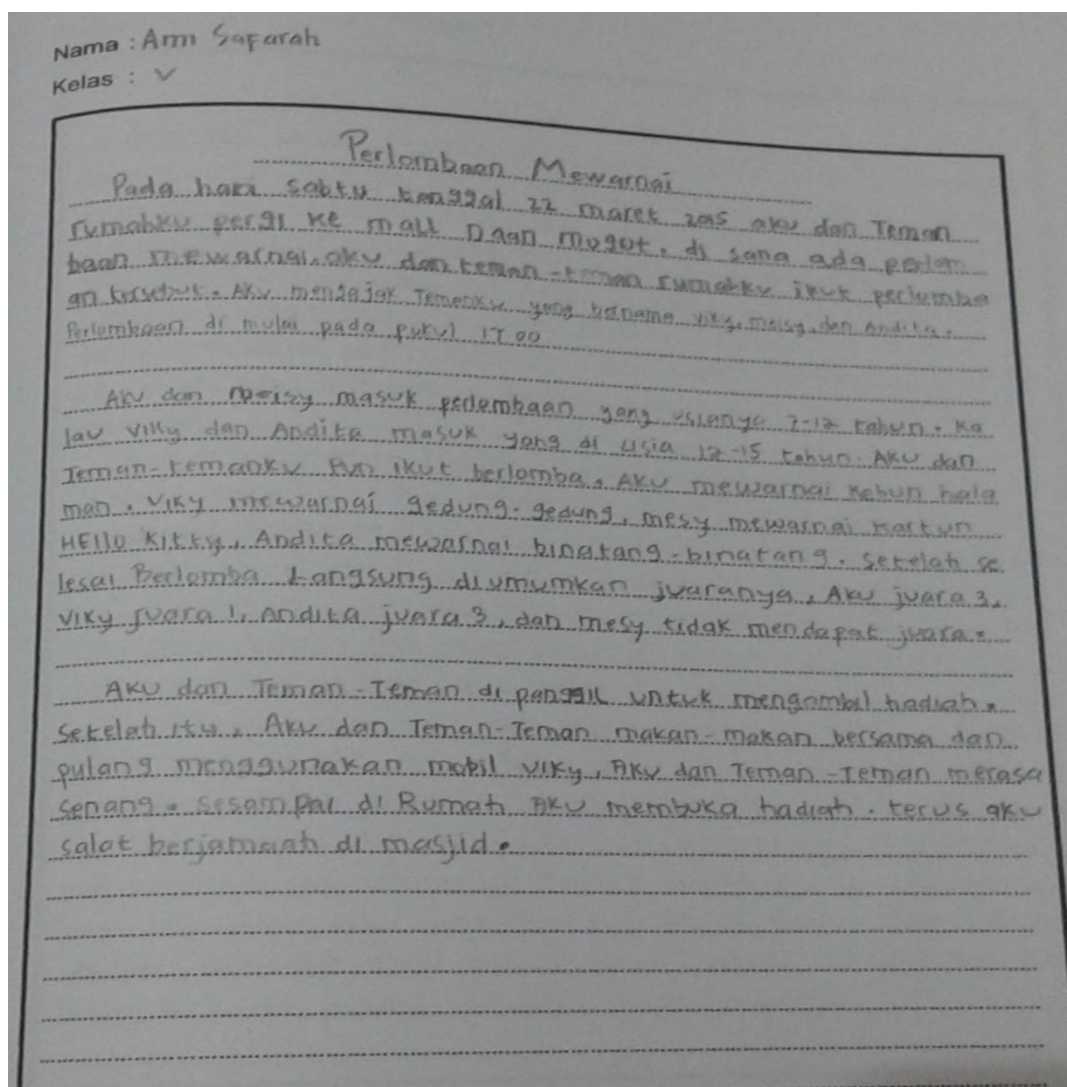 Nama : Arni Safarah
Kelas : V
Perlombaan Mewarnai
Pada hari sabtu tanggal 22 maret 2015 aku dan Teman
rumahku pergi ke mall Daan mogot. di sana ada perlom
baan mewarnai. aku dan teman-teman rumahku ikut perlomba
an tersebut. Aku mengajak Temanku yang bernama viky, meisy, dan Andita.
Perlombaan di mulai pada pukul 17.00
Aku dan Meisy masuk perlombaan yang usianya 7-12 tahun. Ka
lau Viky dan Andita masuk yang di usia 12-15 tahun. Aku dan
Teman-temanku Pun ikut berlomba. Aku mewarnai kebun hala
man. Viky mewarnai gedung-gedung, mesy mewarnai kartun
HEllo Kitty, Andita mewarnai binatang-binatang. setelah se
lesai Berlomba Langsung diumumkan juaranya, Aku juara 3,
Viky juara 1, Andita juara 3, dan mesy tidak mendapat juara.
Aku dan Teman-Teman di panggil untuk mengambil hadiah.
setelah itu, Aku dan Teman-Teman makan-makan bersama dan
pulang menggunakan mobil viky, Aku dan Teman-Teman merasa
senang. Sesampai di Rumah Aku membuka hadiah. terus aku
salat berjamaah di masjid.